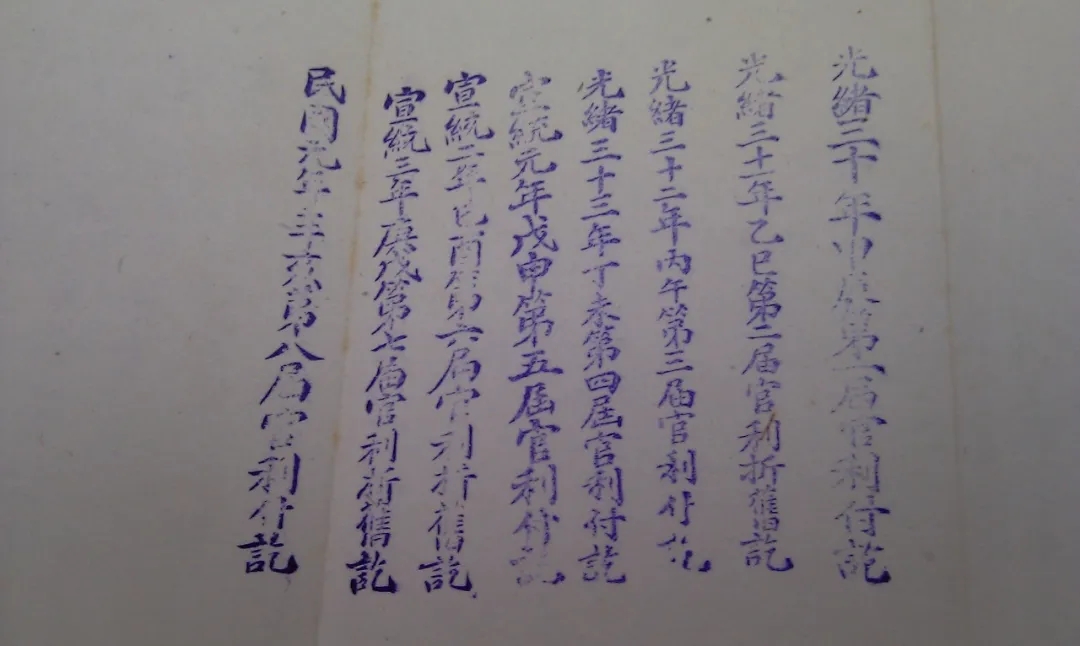 光緒三十年甲辰第一届官利付訖
光緒三十一年乙巳第二届官利折舊訖
光緒三十二年丙午第三届官利付訖
光緒三十三年丁未第四屆官利付訖
宣統元年戊申第五屆官利付訖
宣統二年己酉第六局官利折舊訖
宣統三年庚戌第七届官利折舊訖
民國元年辛亥第八届官利付訖